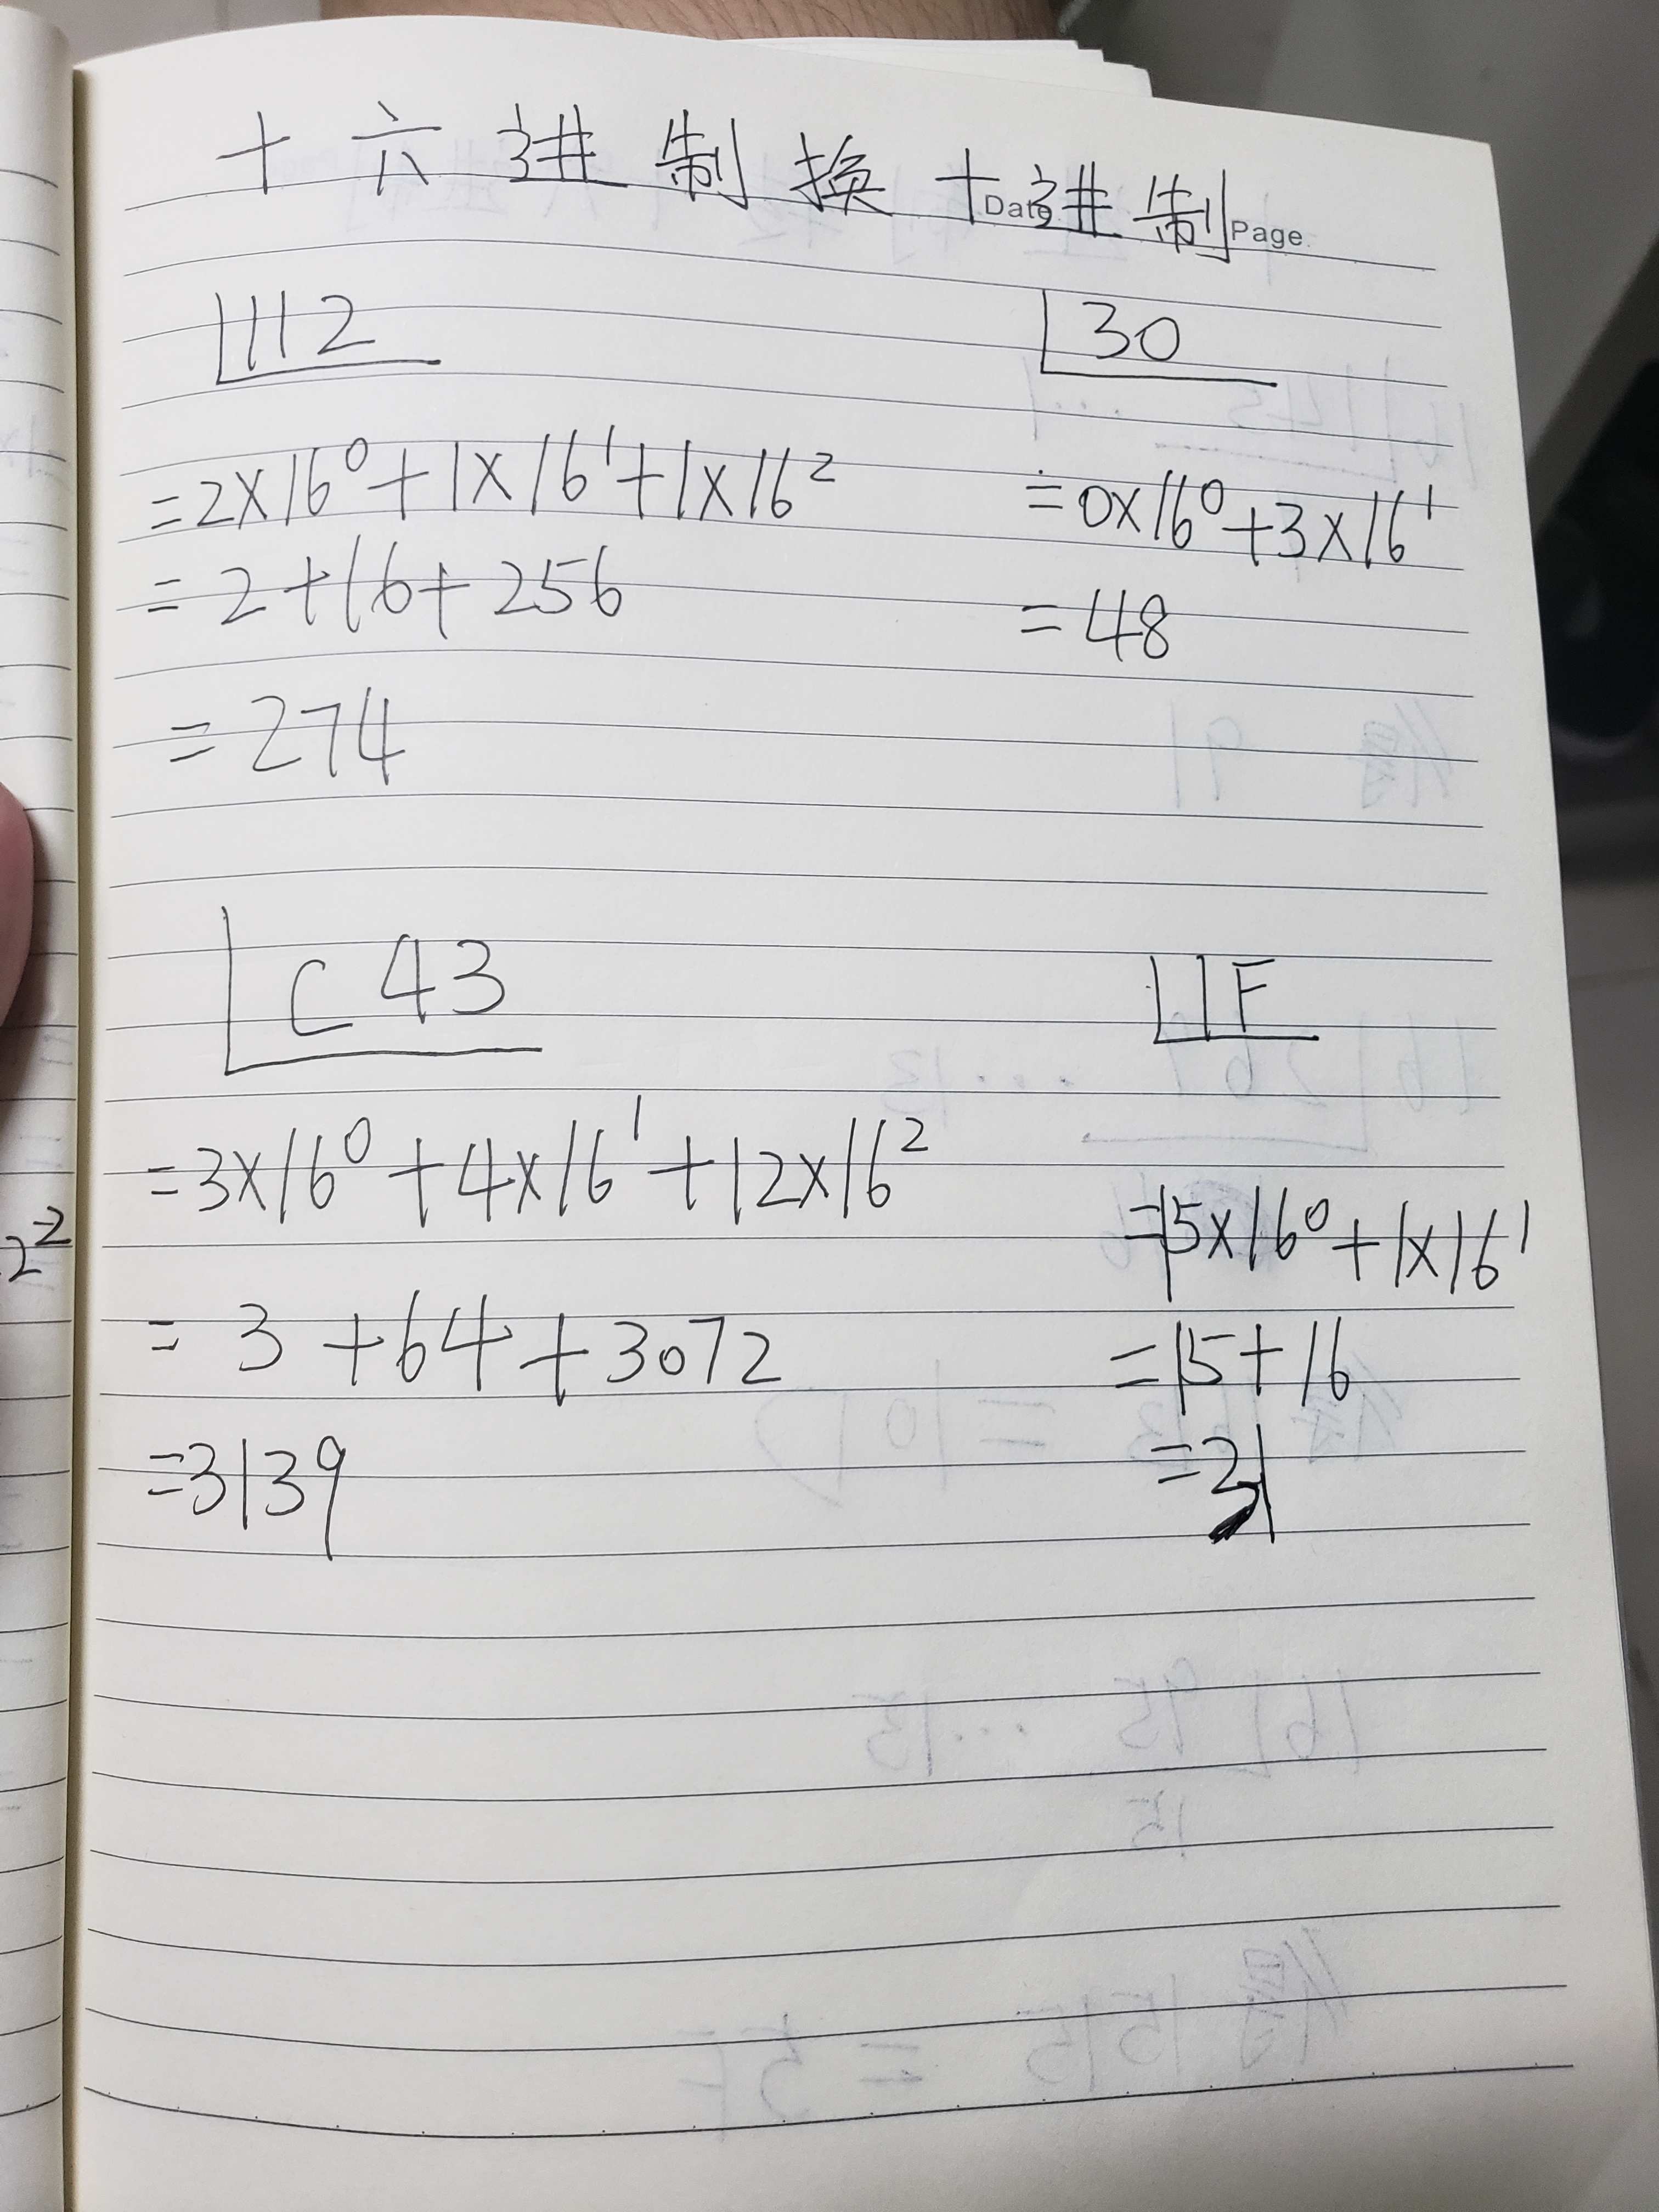 十六进制换十进制
Date.
Page.
112
=2×16⁰+1×16¹+1×16²
=2+16+256
=274
30
=0×16⁰+3×16¹
=48
C43
=3×16⁰+4×16¹+12×16²
=3+64+3072
=3139
1F
=15×16⁰+1×16¹
=15+16
=31
2²